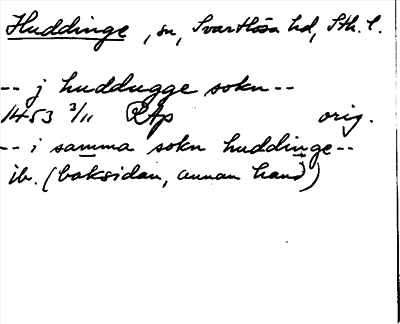 Huddinge, sn, Svartlösa hd, Sth. l.
-- j huddugge sokn --
1453 3/11 RAp orig.
-- i samma sokn huddinge --
ib. (baksidan, annan hand)